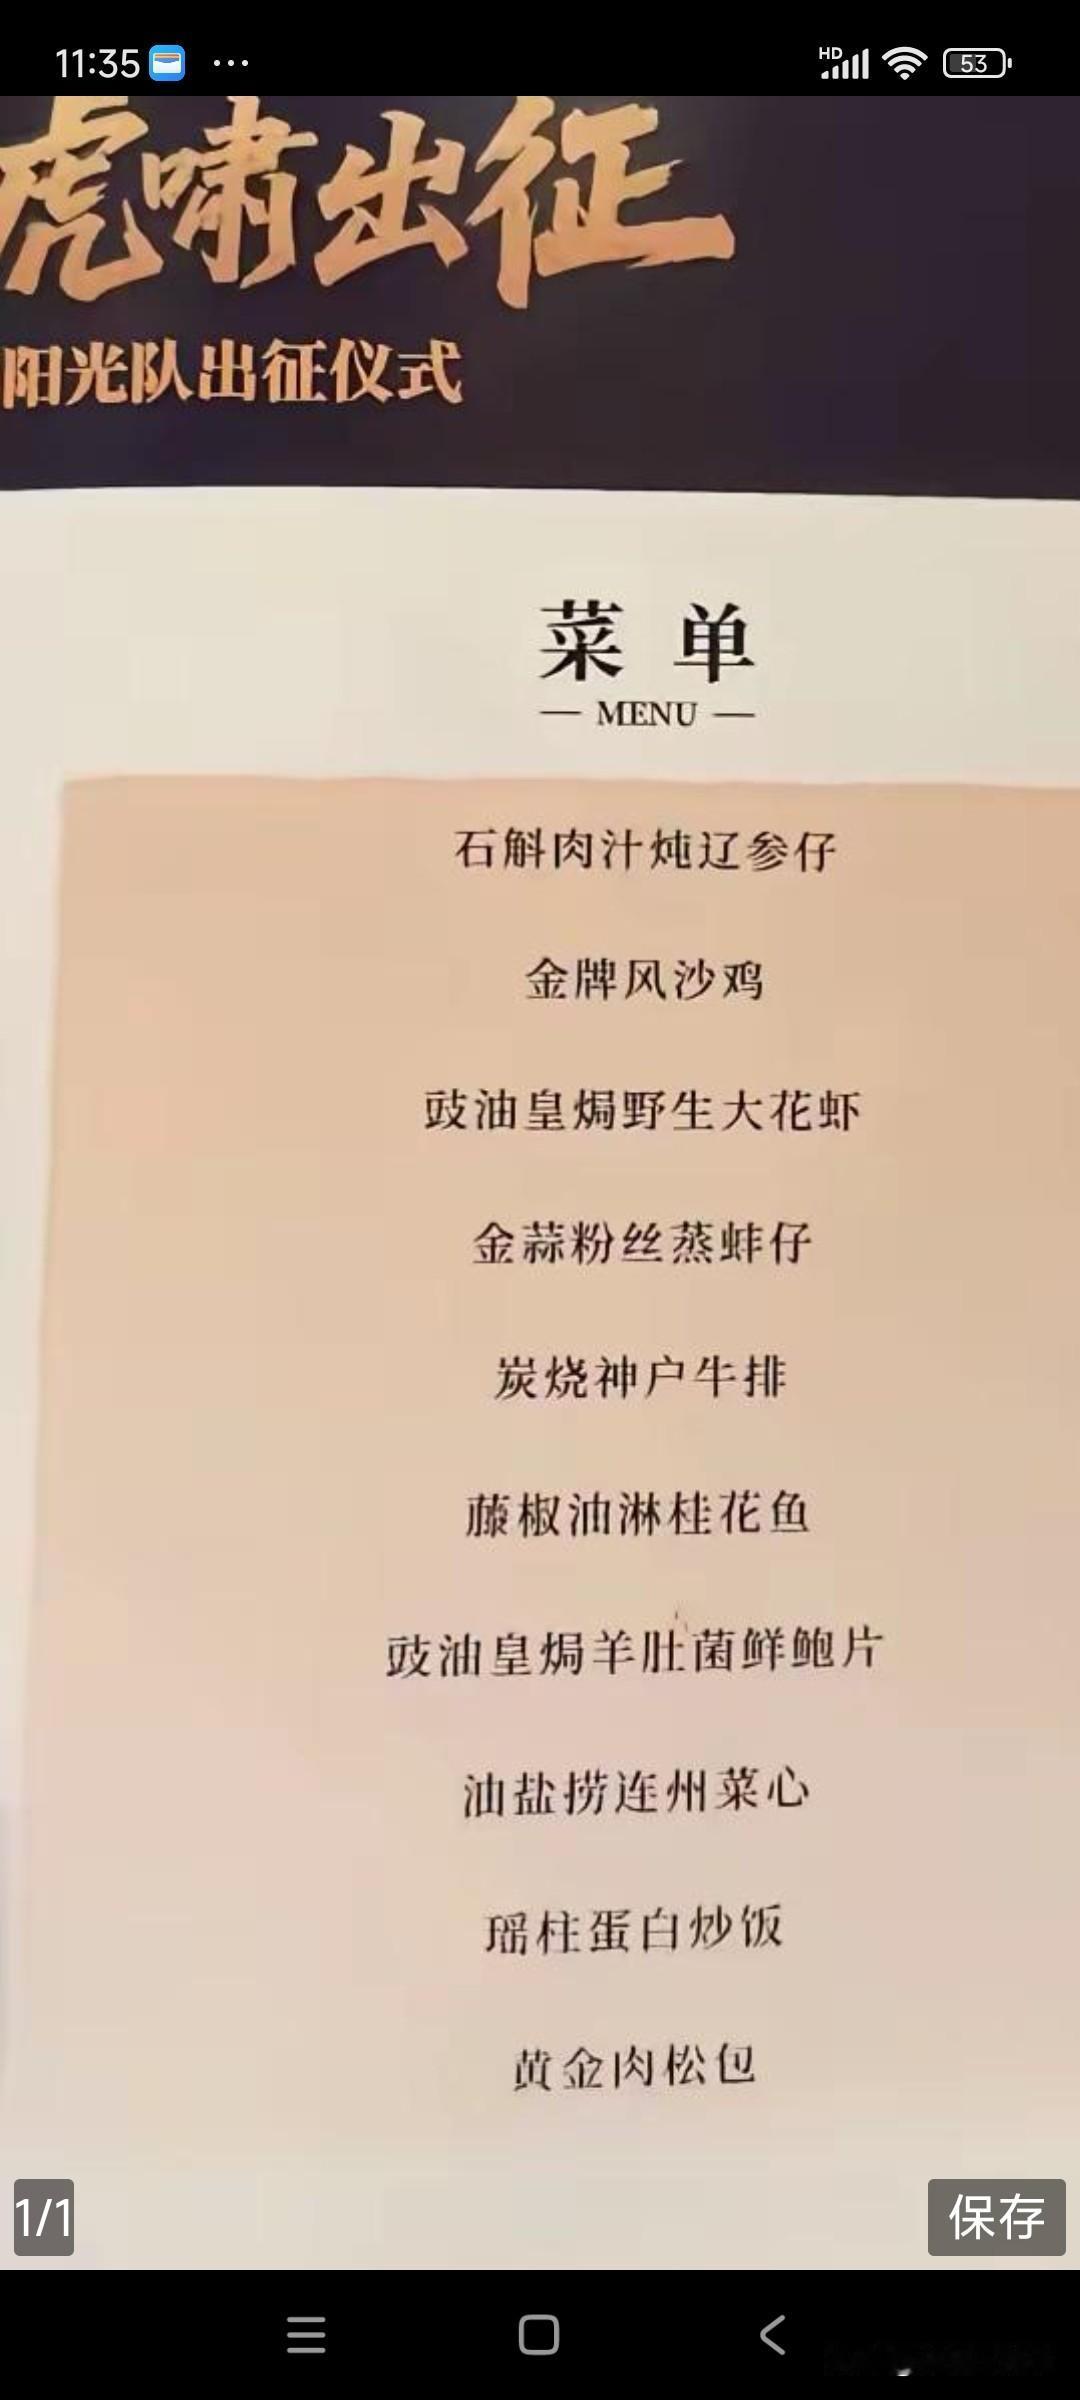 11:35
HD
53
虎啸出征
阳光队出征仪式
菜单
— MENU —
石斛肉汁炖辽参仔
金牌风沙鸡
豉油皇焗野生大花虾
金蒜粉丝蒸蚌仔
炭烧神户牛排
藤椒油淋桂花鱼
豉油皇焗羊肚菌鲜鲍片
油盐捞连州菜心
瑶柱蛋白炒饭
黄金肉松包
1/1
保存